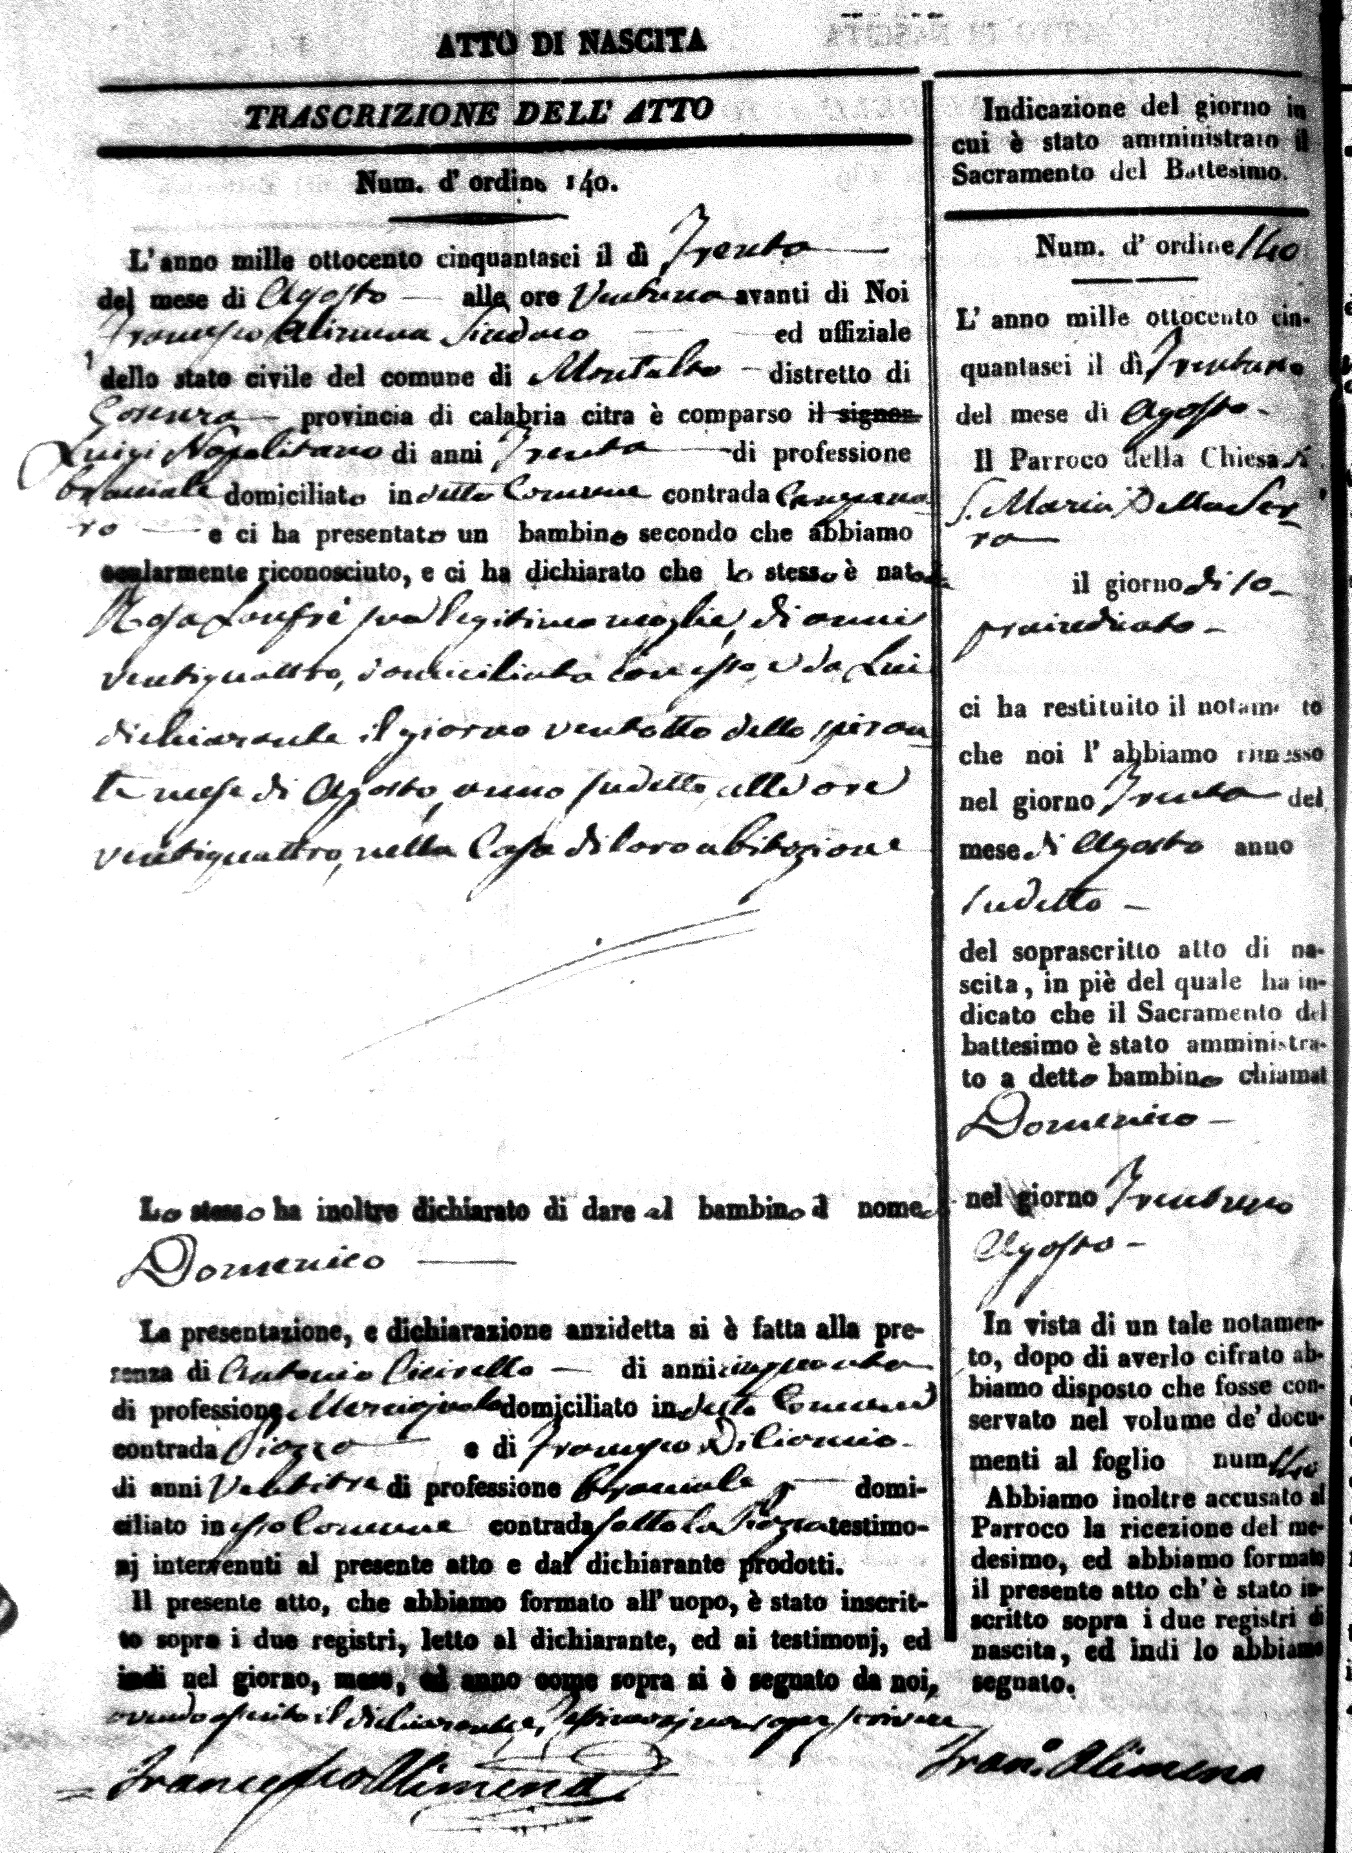 ATTO DI NASCITA
TRASCRIZIONE DELL' ATTO
Num. d' ordine 140.
L'anno mille ottocento cinquantasei il dì Trenta
del mese di Agosto alle ore Ventuna avanti di Noi
Francesco Alimena Sindaco ed uffiziale
dello stato civile del comune di Montalto distretto di
Cosenza provincia di calabria citra è comparso il signor
Luigi Napolitano di anni Trenta di professione
bracciale domiciliato in detto Comune contrada Campana
ro e ci ha presentato un bambino secondo che abbiamo
ocularmente riconosciuto, e ci ha dichiarato che lo stesso è nato da
Rosa sua legitima moglie, di anni
ventiquattro, domiciliata con esso, e da Lui
dichiarante il giorno ventotto dello spiran
te mese di Agosto, anno sudetto, alle ore
ventiquattro, nella Casa di loro abitazione
Lo stesso ha inoltre dichiarato di dare al bambino il nome di
Domenico
La presentazione, e dichiarazione anzidetta si è fatta alla pre-
senza di Antonio di anni cinquanta
di professione domiciliato in detto Comune
contrada Piazza e di Francesco
di anni Ventitre di professione Bracciale domi-
ciliato in esso Comune contrada sotto la testimo-
nj intervenuti al presente atto e dal dichiarante prodotti.
Il presente atto, che abbiamo formato all' uopo, è stato inscrit-
to sopra i due registri, letto al dichiarante, ed ai testimonj, ed
indi nel giorno, mese, ed anno come sopra si è segnato da noi,
avendo asserito il dichiarante, e Testimonj non saper scrivere
= Francesco Alimena
Indicazione del giorno in
cui è stato amministrato il
Sacramento del Battesimo.
Num. d' ordine 140
L' anno mille ottocento cin-
quantasei il dì Trentuno
del mese di Agosto -
Il Parroco della Chiesa di
S. Maria Della Ser-
ra
il giorno di so-
praindicato -
ci ha restituito il notamento
che noi l' abbiamo rimesso
nel giorno Trenta del
mese di Agosto anno
sudetto -
del soprascritto atto di na-
scita, in piè del quale ha in-
dicato che il Sacramento del
battesimo è stato amministra-
to a detto bambino chiamat
Domenico -
nel giorno Trentuno
Agosto -
In vista di un tale notamen-
to, dopo di averlo cifrato ab-
biamo disposto che fosse con-
servato nel volume de' docu-
menti al foglio num. 140
Abbiamo inoltre accusato al
Parroco la ricezione del me-
desimo, ed abbiamo formato
il presente atto ch' è stato in-
scritto sopra i due registri di
nascita, ed indi lo abbiamo
segnato.
Fran.º Alimena